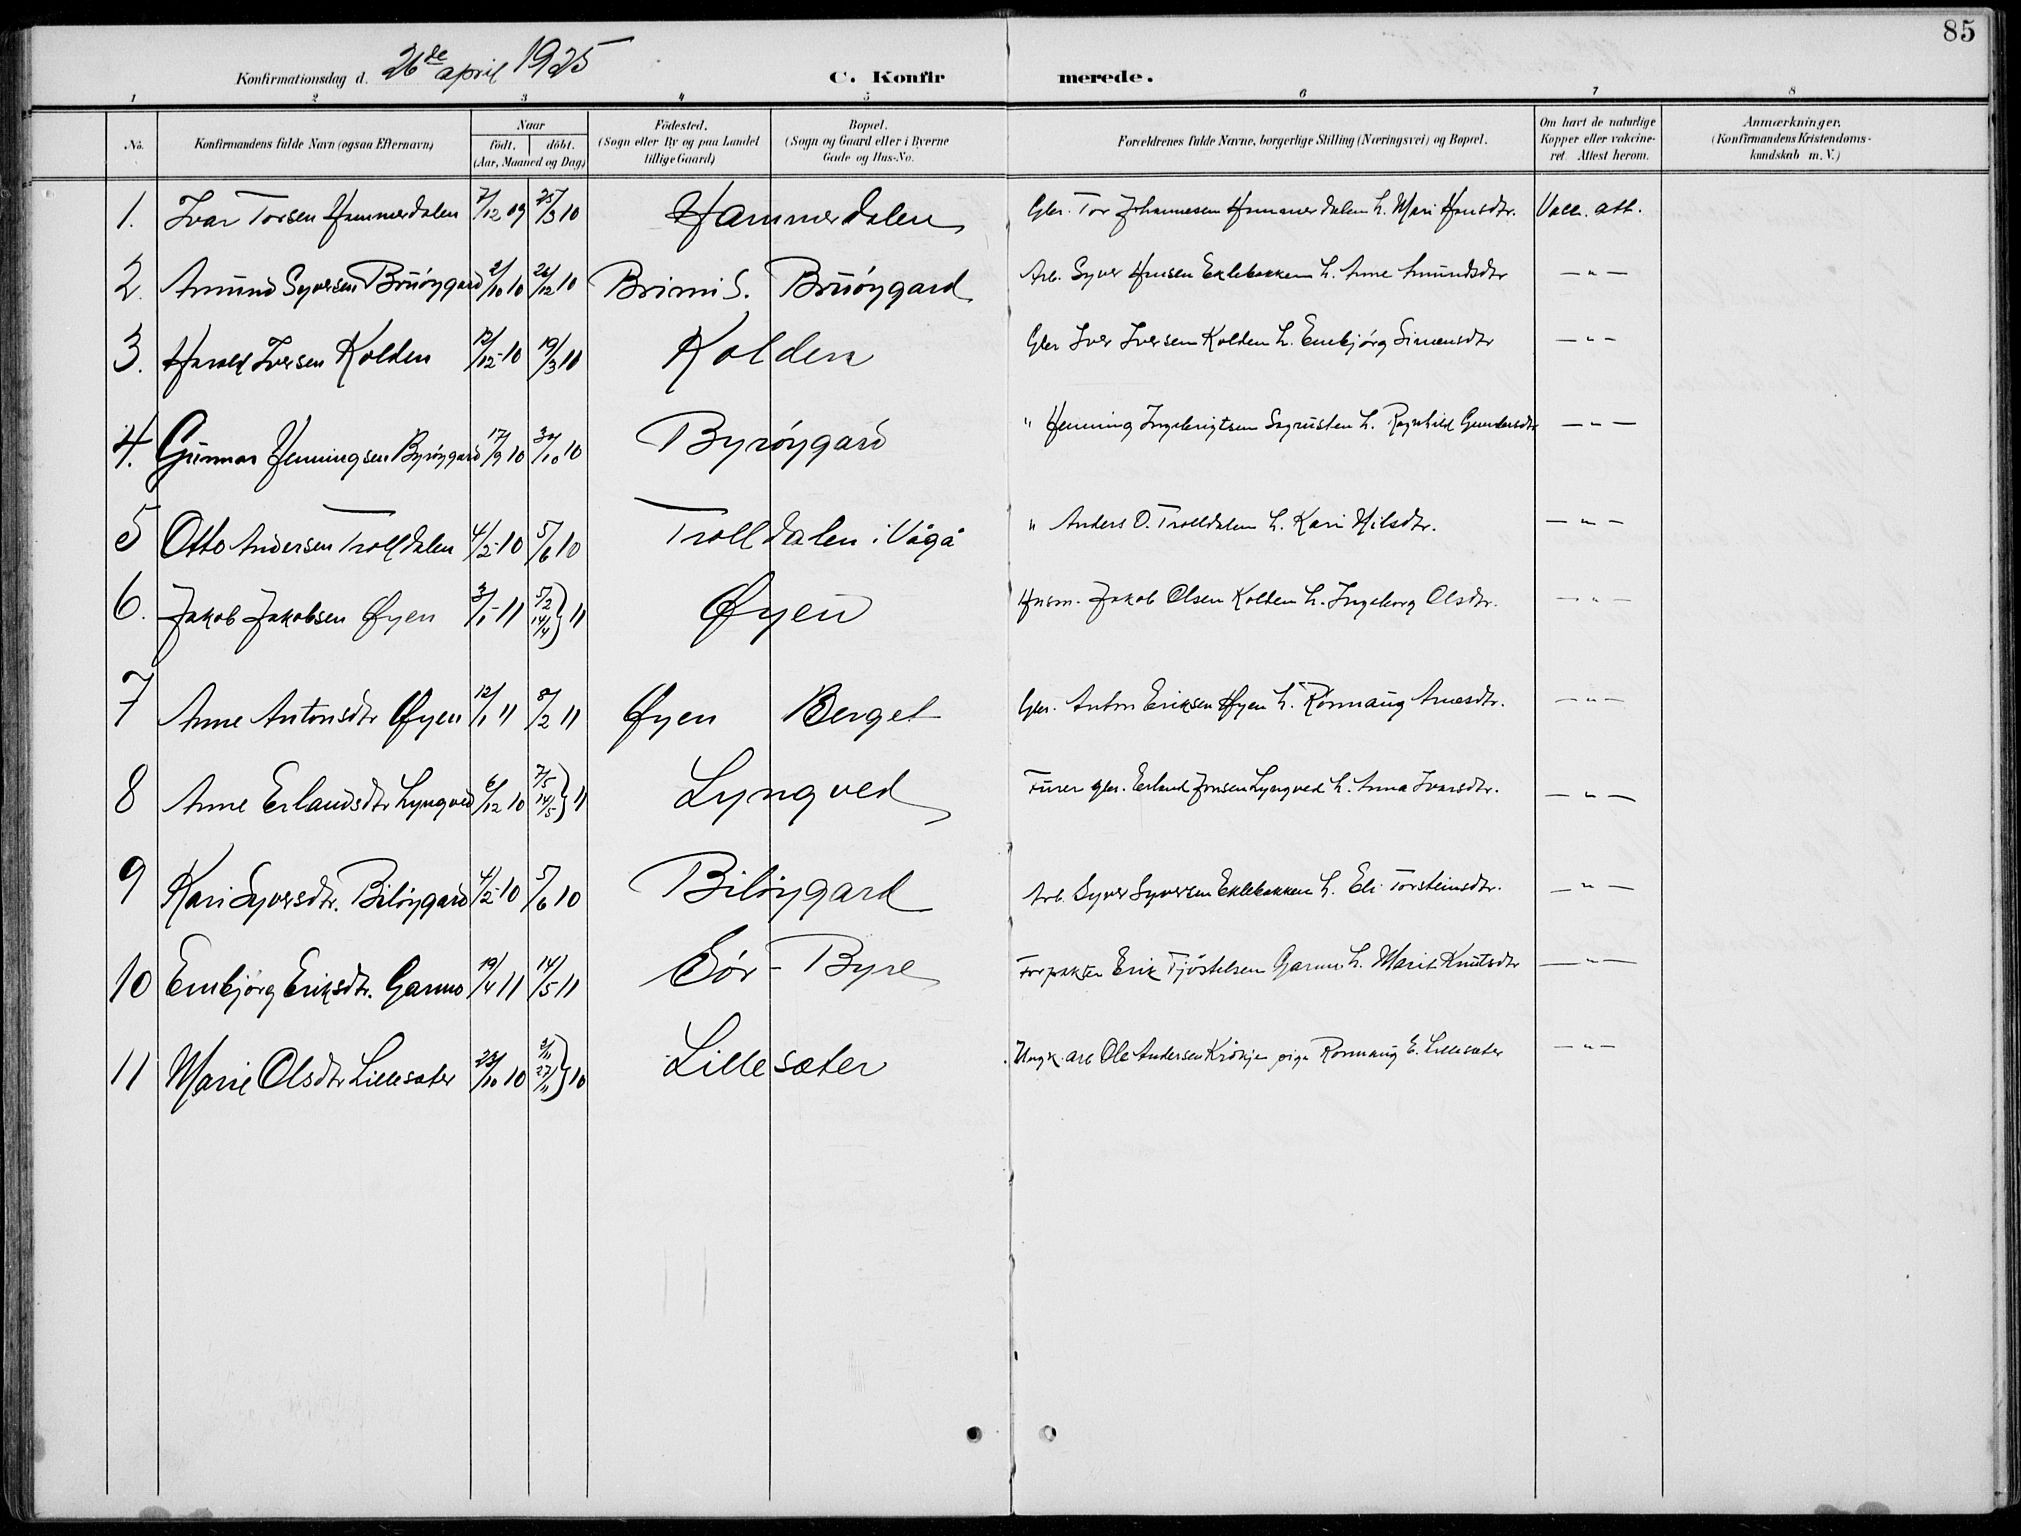 85
Konfirmationsdag d. 26de april 1925 C. Konfir merede.
1 2 3 4 5 6 7 8
No. Konfirmandens fulde Navn (ogsaa Efternavn) Naar födt. döbt. (Aar, Maaned og Dag) Födested. (Sogn eller By og paa Landet tillige Gaard) Bopæl. (Sogn og Gaard eller i Byerne Gade og Hus-No. Forældrenes fulde Navne, borgerlige Stilling (Næringsvei) og Bopæl. Om havt de naturlige Kopper eller vakcineret. Attest herom. Anmærkninger. (Konfirmandens Kristendomskundskab m. V.)
1. Ivar Torsen Hammerdalen 7/12 09 25/3 10 Hammerdalen Gbr. Tor Johannesen Hammerdalen h. Mari Hansdtr. Vacc. att.
2. Amund Syversen Bruøygard 2/10 10 26/12 10 Brimi S. Bruøygard Arb. Syver Hansen Eklebakken h. Anne Amundsdtr — " —
3. Harald Iversen Kolden 12/12-10 19/3 11 Kolden Gbr Iver Iversen Kolden h. Embjørg Simensdtr — " —
4. Gunnar Henningsen Byrøygard 17/9 10 30/10 10 Byrøygard " Henning Ingebrigtsen h. Ragnhild Gundersdtr — " —
5 Otto Andersen Trolldalen 4/2-10 5/6 10 Trolldalen i Vågå " Anders O. Trolldalen h. Kari Nilsdtr. — " —
6. Jakob Jakobsen Øyen 3/1-11 5/2 14/4 } 11 Øyen Husm. Jakob Olsen Kolden h. Ingeborg Olsdtr. — " —
7 Anne Antonsdtr Øyen 12/1 11 8/2 11 Øyen Berget Gbr. Anton Eriksen Øyen h. Rønnaug Arnesdtr. — " —
8 Anne Erlandsdtr Lyngved 6/12 10 7/5 14/5 } 11 Lyngved Furer gbr. Erland Jonsen Lyngved h. Anna Ivarsdtr. — " —
9 Kari Syversdtr. Biløygard 4/2-10 5/6 10 Biløygard Arb. Syver Syversen Eklebakken h. Eli Torsteinsdtr. — " —
10 Embjørg Eriksdtr. Garmo 19/4 11 14/5 11 Sør-Byre Forpakter Erik Tjøstelsen Garmo h. Marit Knutsdtr — " —
11 Marie Olsdtr Lillesæter 23/10 10 2/11 27/11 } 10 Lillesæter Ungk. arb Ole Andersen pige Rønnaug E. Lillesæter — " —